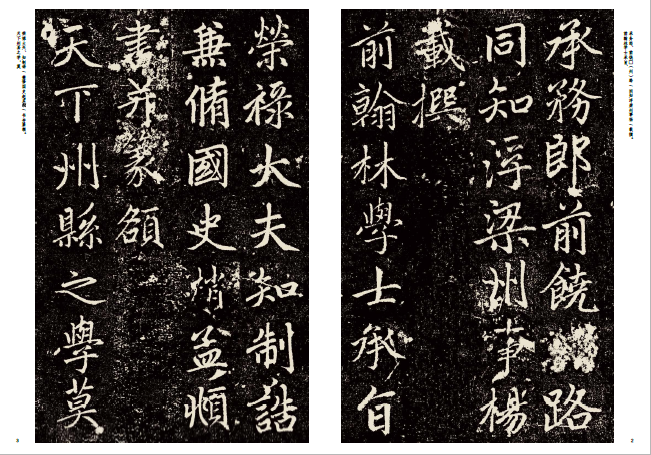 承務郎前饒路
同知浮梁州事楊
載撰
前翰林學士承旨
2
榮祿大夫知制誥
兼脩國史趙孟頫
書并篆額
天下州縣之學莫
3